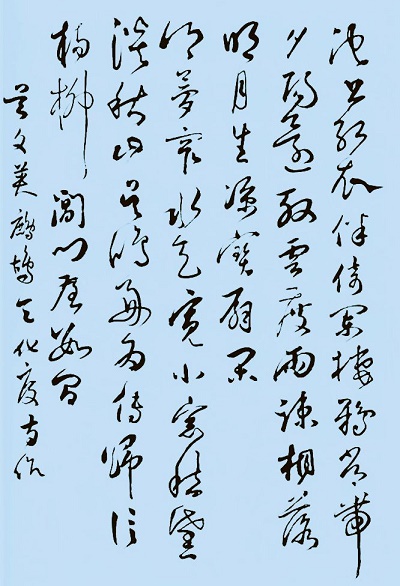 池上紅衣伴倚闌棲鴉常帶
夕陽還殷雲度雨疎桐落
明月生涼寶扇閑
鄉夢窄水天寬小窗愁黛
淡秋山吳鴻好為傳歸信
楊柳閶門屋數間
吳文英鷓鴣天化度寺作